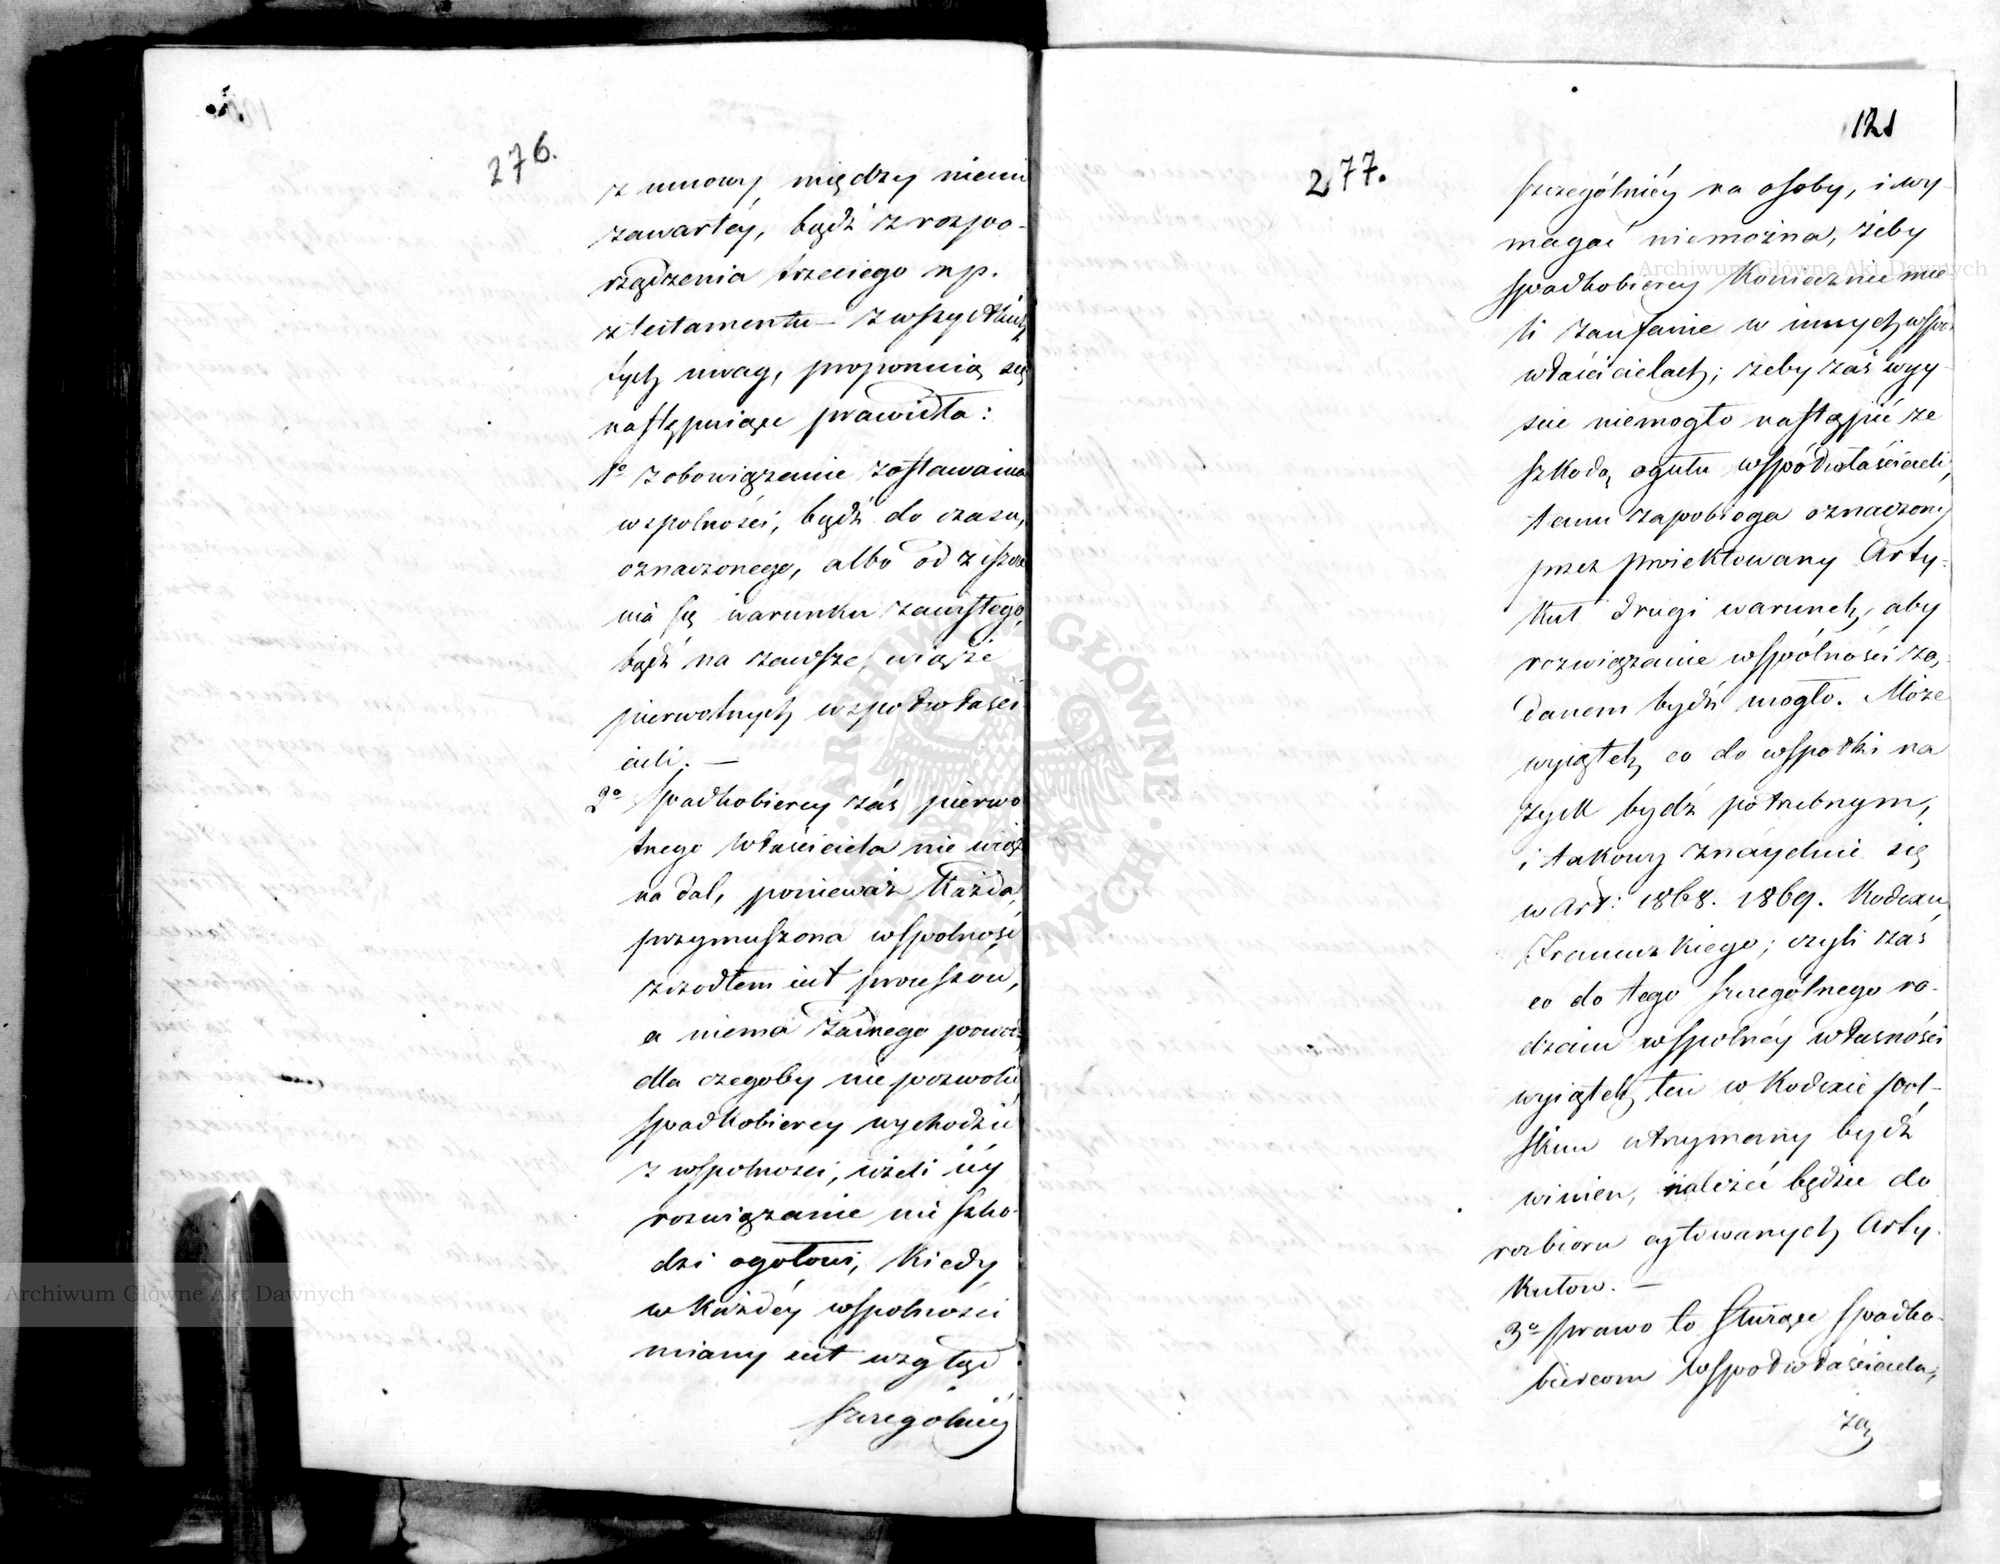 276.
z umowy między niemi
zawartéy, bądź z rozpo-
rządzenia trzeciego np.
z testamentu — z wszystkich
tych uwag, proponuią się
następuiące prawidła:
1o zobowiązanie zostawania
w spolności, bądź do czasu,
oznaczonego, albo od ziszcze
nia się warunku zawisłego,
bądź na zawsze, wiąże
pierwotnych wspołwłaści
cieli. —
2o Spadkobiercy zaś pierwo
tnego Właściciela nie wiąże
na dal, ponieważ Każda,
przymuszona wspolność
zrzodłem iest processów,
a niema żadnego powodu,
dla czegoby nie pozwolić
spadkobiercy wychodzić
z wspolności, ieżeli iéy
rozwiązanie nie szko-
dzi ogołowi, Kiedy
w Każdéy wspolności
miany iest wzgląd
szczególniéy
277.
121
szczególniéy na osoby, i wy-
magać niemożna, żeby
spadkobiercy Koniecznie mie
li zaufanie w innych wspoł
właścicielach; żeby zaś wyy-
scie niemogło nastąpić ze
szkodą ogułu wspódwłaścicieli,
temu zapobiega oznaczony
przez proiektowany Arty-
kuł drugi warunek, aby
rozwiązanie wspólności żą-
danem bydź mogło. Może
wyiątek co do wspołki na
zysk bydź potrzebnym,
i takowy znayduie się
w Art: 1868. 1869. Kodexu
Francuzkiego; czyli zaś
co do tego szczególnego ro-
dzaiu wspolnéy własności
wyiątek ten w Kodexie pol-
skim utrzymany bydź
winien, należeć będzie do
rozbioru cytowanych Arty-
kułow. —
3o prawo to służące spadko-
biercom wspołwłaściciela,
żą
Archiwum Główne Akt Dawnych
Archiwum Główne Akt Dawnych
ARCHIWUM GŁÓWNE AKT DAWNYCH